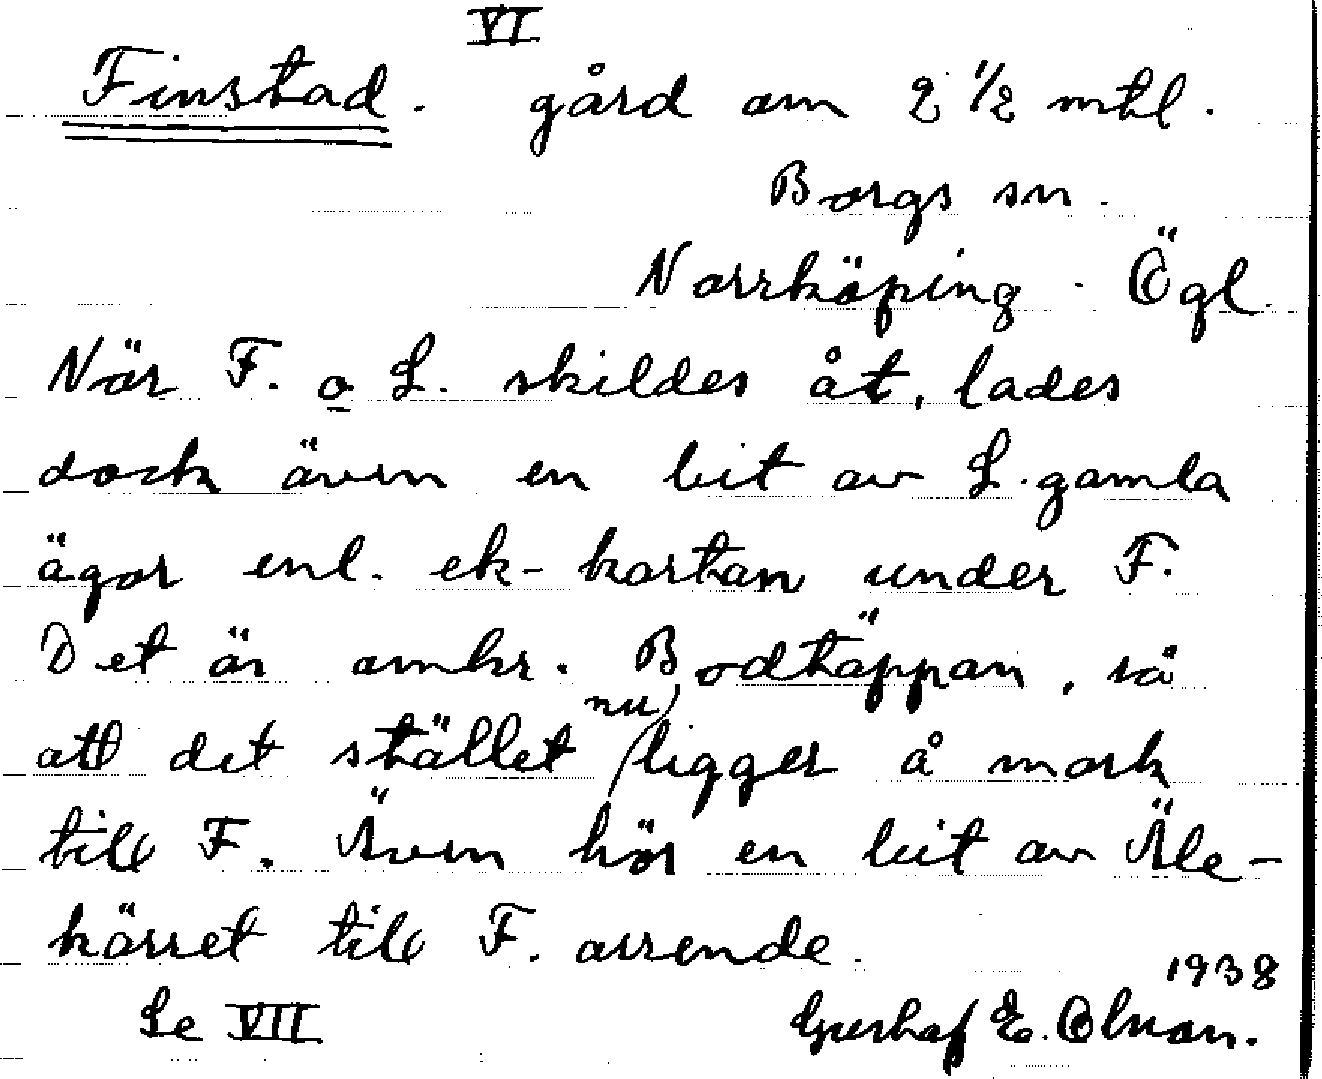 VI
Finstad. gård om 2 1/2 mtl.
Borgs sn.
Norrköping. Ögl.
När F. o L. skildes åt, lades
dock även en bit av L. gamla
ägor enl. ek-kartan under F.
Det är omkr. Bodtäppan, så
att det stället nu ligger å mark
till F. Även hör en bit av Åle-
kärret till F. arrende.
1938
Se VII Gusthaf E. Olson.